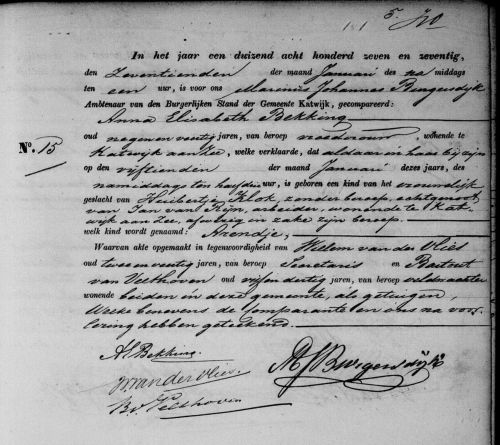 5.
In het jaar een duizend acht honderd zeven en zeventig,
den Zeventienden der maand Januari des na middags
ten een ure, is voor ons Marinus Johannes Bwigendijk
Ambtenaar van den Burgerlijken Stand der Gemeente Katwijk, gecompareerd:
Anna Elisabeth Bekking
oud negenenveertig jaren, van beroep vroedvrouw, wonende te
No. 15
Katwijk aan Zee, welke verklaarde, dat aldaar in haar bijzijn
op den vijftienden der maand Januari dezes jaars, des
namiddags ten half drie ure, is geboren een kind van het vrouwelijk
geslacht van Huibertje Klok, zonder beroep, echtgenoot
van Jan van Rijn, arbeider, wonende te Kat-
wijk aan Zee, afwezig in zake zijn beroep.
welk kind wordt genaamd: Arendje,
Waarvan akte opgemaakt in tegenwoordigheid van Willem van der Vlies
oud tweeenveertig jaren, van beroep Secretaris en Bartout
van Velthoven oud vijfendertig jaren, van beroep veldwachter
wonende beiden in deze gemeente, als getuigen,
Welke benevens de Comparante en ons na voor-
lezing hebben geteekend.
A E Bekking.
W. van der Vlies.
B. v. Velthoven